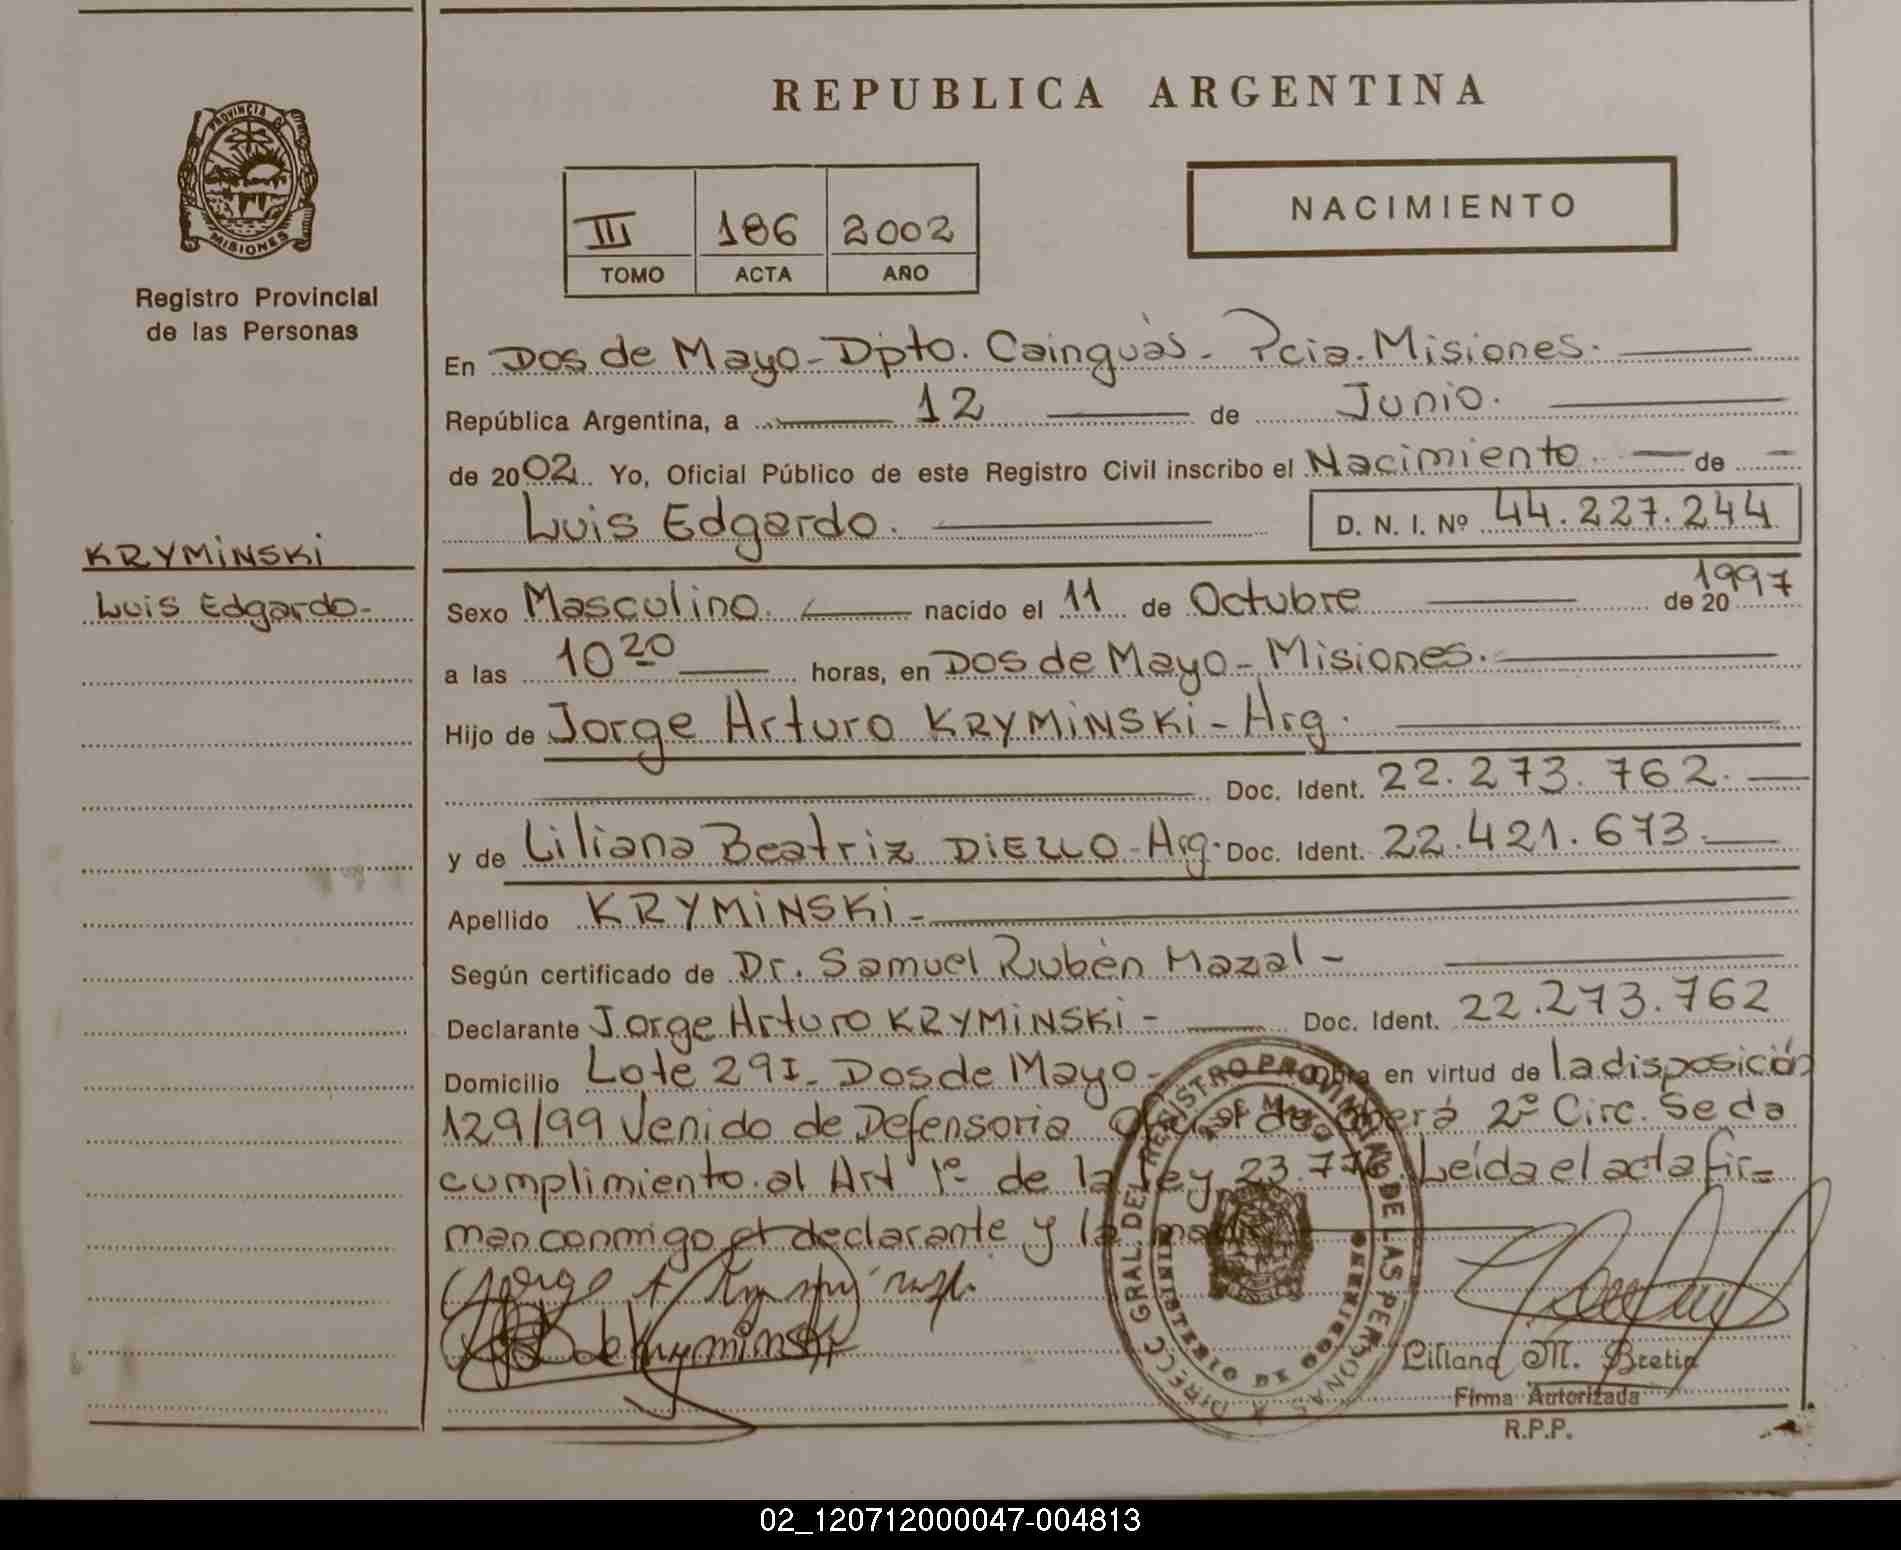 REPUBLICA ARGENTINA
PROVINCIA D
MISIONES
Registro Provincial
de las Personas
III 186 2002
TOMO ACTA AÑO
NACIMIENTO
En Dos de Mayo - Dpto. Cainguás - Pcia. Misiones.
República Argentina, a 12 de Junio.
de 2002. Yo, Oficial Público de este Registro Civil inscribo el Nacimiento de
Luis Edgardo. D. N. I. Nº 44.227.244
KRYMINSKI
Luis Edgardo-
Sexo Masculino. nacido el 11 de Octubre de 20 1997
a las 10 20 horas, en Dos de Mayo - Misiones.
Hijo de Jorge Arturo KRYMINSKI - Arg.
Doc. Ident. 22.273.762.
y de Liliana Beatriz DIELLO - Arg. Doc. Ident. 22.421.673.
Apellido KRYMINSKI -
Según certificado de Dr. Samuel Rubén Mazal -
Declarante Jorge Arturo KRYMINSKI - Doc. Ident. 22.273.762
Domicilio Lote 29I - Dos de Mayo - Obra en virtud de la disposición
129/99 Venido de Defensoria Oficial de Oberá 2º Circ. Se da
cumplimiento al Art 1º de la ley 23.776. Leída el acta fir=
man conmigo el declarante y la madre
Jorge A Kryminski
de Kryminski
DIRECC GRAL. DEL REGISTRO PROVINCIAL DE LAS PERSONAS
MINISTERIO DE GOBIERNO
DOS DE MAYO
Liliana M. Bretin
Firma Autorizada
R.P.P.
02_120712000047-004813